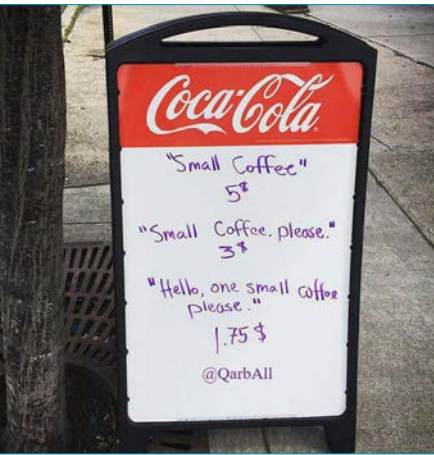 Coca-Cola
"Small Coffee"
5$
"Small Coffee, please."
3$
"Hello, one small coffee
please."
1.75 $
@QarbAll